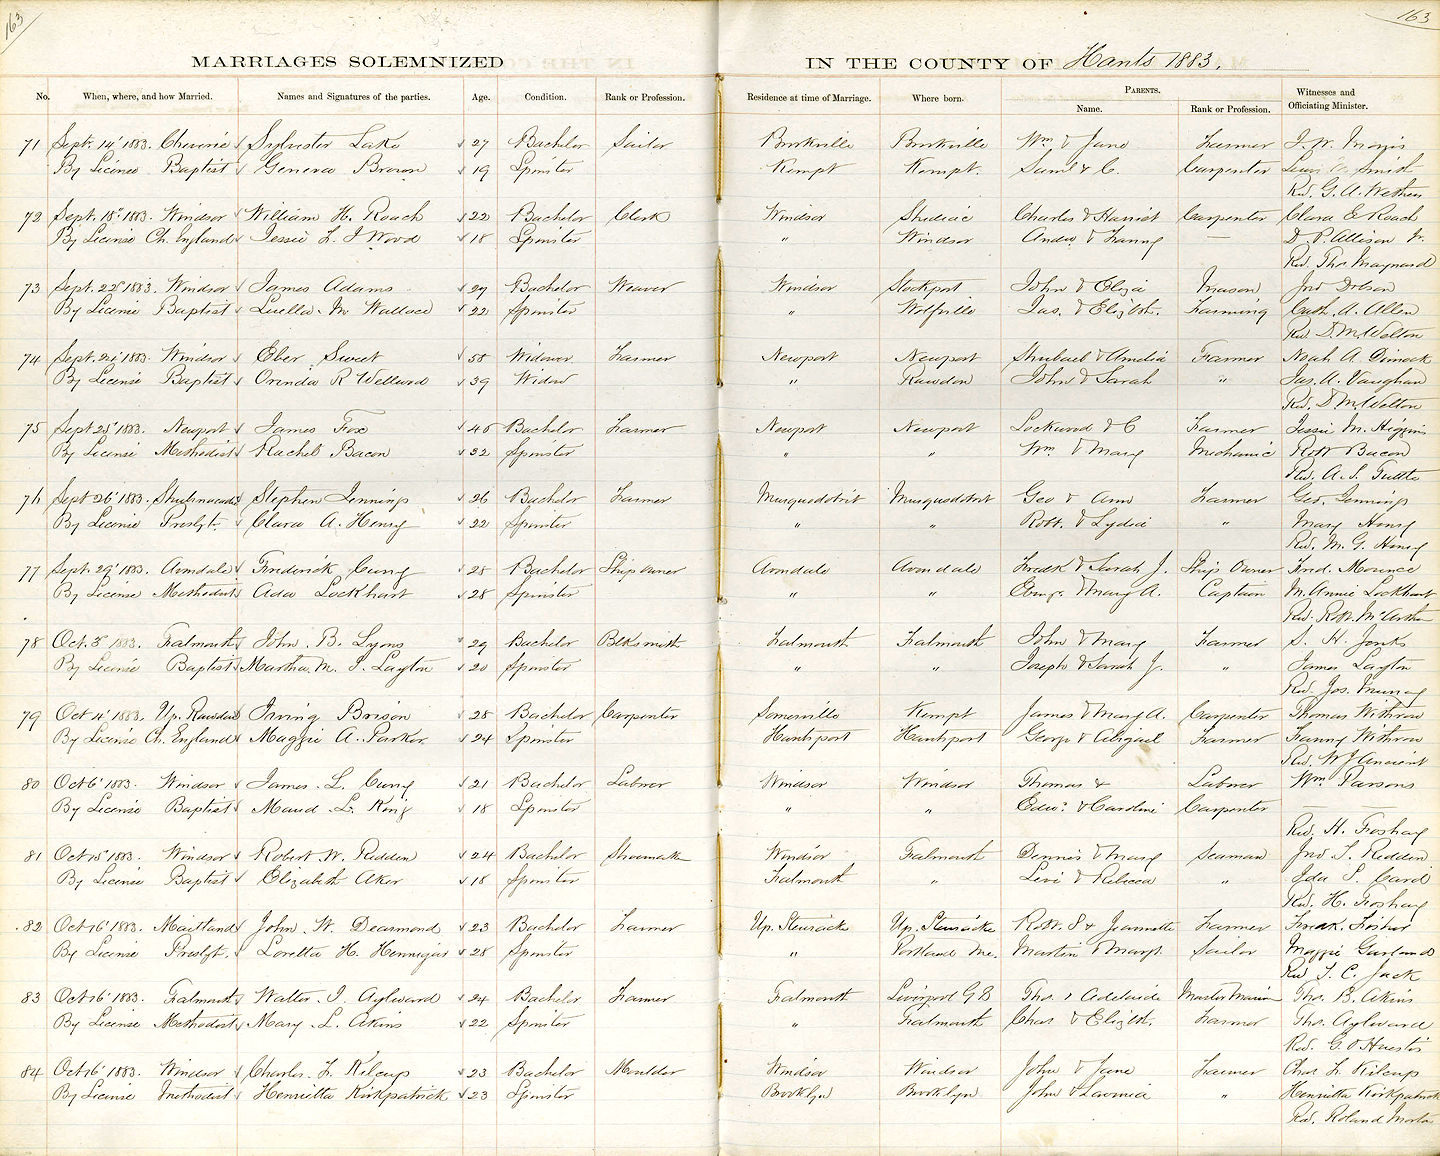 163
163
MARRIAGES SOLEMNIZED IN THE COUNTY OF Hants 1883.
No. When, where, and how Married. Names and Signatures of the parties. Age. Condition. Rank or Profession. Residence at time of Marriage. Where born. PARENTS. Name. Rank or Profession. Witnesses and Officiating Minister.
71 Sept. 14 1883. Cheverie Sylvester Lake 27 Bachelor Sailor Burkville Burkville Wm & Jane Farmer J. W. Morris
By License Baptist Geneva Brown 19 Spinster Kempt Kempt. Saml & C. Carpenter Smith
Rev. G. A. Weathers
72 Sept. 18 1883. Windsor William H. Roach 22 Bachelor Clerk Windsor Shediac Charles & Harriet Carpenter Clara E Roach
By License Ch. England Jessie L. J Wood 18 Spinster " Windsor Andw & Fanny — D. P. Allison Jr.
Rev. Thos Maynard
73 Sept. 22 1883. Windsor James Adams 29 Bachelor Weaver Windsor Stockport John & Eliza Mason Jno Dobson
By License Baptist Luella M Wallace 22 Spinster " Wolfville Jas. & Elizbth. Farming Cath. A. Allen
Rev. D. M. Welton
74 Sept. 24 1883. Windsor Eber Sweet 58 Widower Farmer Newport Newport Shubael & Amelia Farmer Noah A Dimock
By License Baptist Orinda R Wellwood 39 Widow " Rawdon John & Sarah " Jas. A. Vaughan
Rev. D M. Welton
75 Sept 25 1883. Newport James Fox 45 Bachelor Farmer Newport Newport Lockwood & C Farmer Jessie M. Higgins
By License Methodist Rachel Bacon 32 Spinster " " Wm & Mary Mechanic Robt Bacon
Rev. A. S. Tuttle
76 Sept 26 1883. Shubenacadie Stephen Jennings 26 Bachelor Farmer Musquodobit Musquodobit Geo & Ann Farmer Geo. Jennings
By License Presbyt. Clara A. Henry 22 Spinster " " Robt. & Lydia " Mary Henry
Rev. M. G. Henry
77 Sept. 29 1883. Avondale Frederick Curry 28 Bachelor Ship owner Avondale Avondale Fredk & Sarah J. Ship Owner Fred. Mounce
By License Methodist Ada Lockhart 28 Spinster " " & Mary A. Captain M. Annie Lockhart
Rev. Robt. McArthur
78 Oct. 3 1883. Falmouth John B. Lyons 29 Bachelor Blksmith Falmouth Falmouth John & Mary Farmer S. H. Jenks
By License Baptist Martha M. J. Layton 20 Spinster " " Joseph & Sarah J. " James Layton
Rev. Jos. Murray
79 Oct 4 1883. Up. Rawdon Irving Brison 28 Bachelor Carpenter Somerville Kempt James & Mary A. Carpenter Thomas Withrow
By License Ch. England Maggie A. Parker 24 Spinster Hantsport Hantsport George & Abigail Farmer Fanny Withrow
Rev. W J Ancient
80 Oct 6 1883. Windsor James L. Curry 21 Bachelor Laborer Windsor Windsor Thomas & Laborer Wm. Parsons
By License Baptist Maud L. King 18 Spinster " " Edwd & Caroline Carpenter
Rev. H. Foshay
81 Oct 15 1883. Windsor Robert W. Redden 24 Bachelor Shoemaker Windsor Falmouth Dennis & Mary Seaman Jno S. Redden
By License Baptist Elizabeth Aker 18 Spinster Falmouth " Levi & Rebecca " Ida S. Card
Rev. H. Foshay
82 Oct 16 1883. Maitland John W. Dearmond 23 Bachelor Farmer Up. Stewiacke Up. Stewiacke Robt. S & Jeannette Farmer Fisher
By License Presbyt. Loretta H. Hennigar 28 Spinster " Portland Me. Martin & Margt. Sailor Maggie Garland
Rev T. C. Jack
83 Oct 16 1883. Falmouth Walter J. Aylward 24 Bachelor Farmer Falmouth Liverpool G B Thos & Adelaide Master Mariner Thos. B. Akins
By License Methodist Mary L. Akins 22 Spinster " Falmouth Chas & Elizbth. Farmer Thos. Aylward
Rev. G. O Huestis
84 Oct 16 1883. Windsor Charles F. Kilcup 23 Bachelor Moulder Windsor Windsor John & Jane Farmer Chas F Kilcup
By License Methodist Henrietta Kirkpatrick 23 Spinster Brooklyn Brooklyn John & Lavinia " Henrietta Kirkpatrick
Rev. Roland Morton